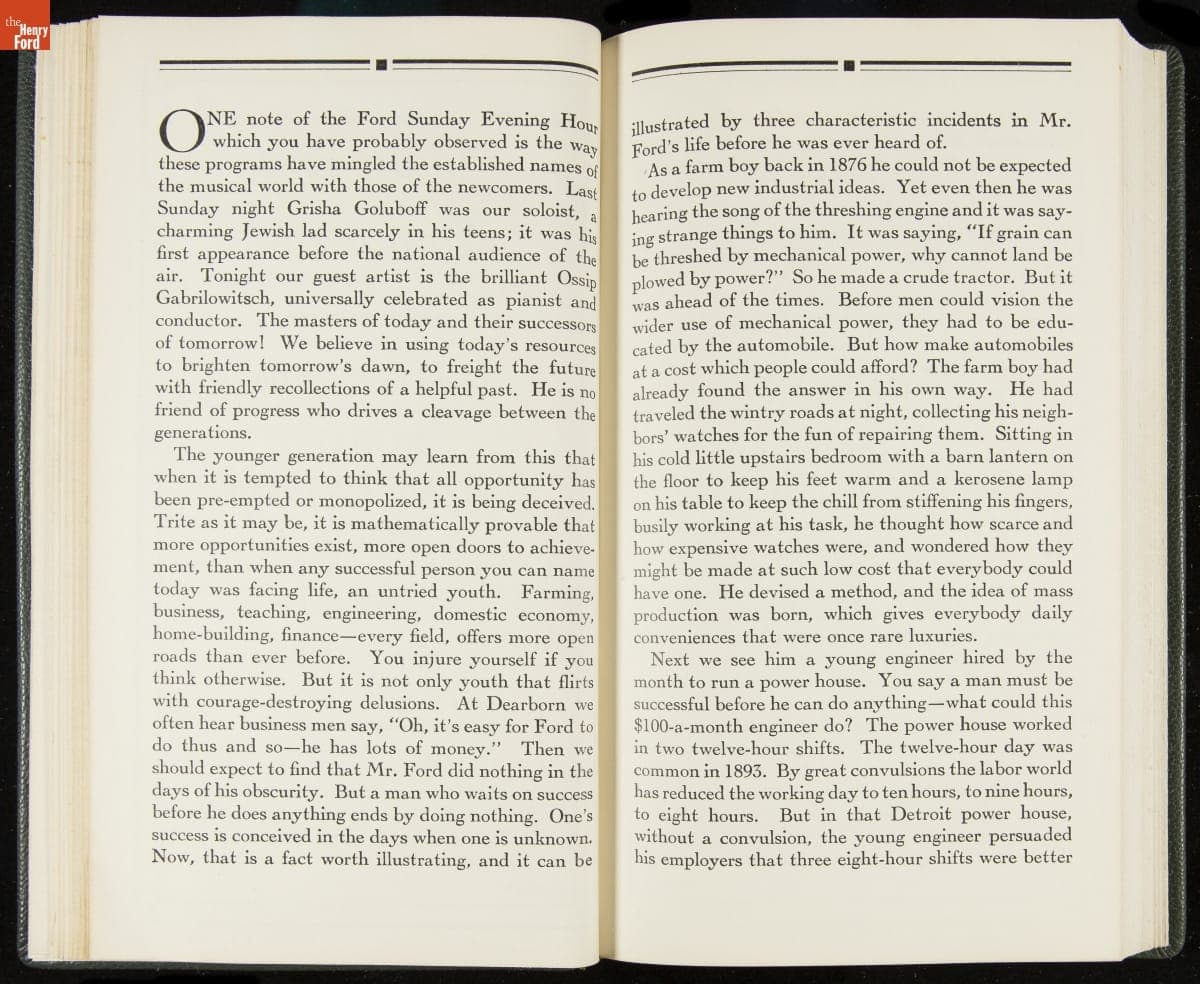 the
Henry
Ford
ONE note of the Ford Sunday Evening Hour
which you have probably observed is the way
these programs have mingled the established names of
the musical world with those of the newcomers. Last
Sunday night Grisha Goluboff was our soloist, a
charming Jewish lad scarcely in his teens; it was his
first appearance before the national audience of the
air. Tonight our guest artist is the brilliant Ossip
Gabrilowitsch, universally celebrated as pianist and
conductor. The masters of today and their successors
of tomorrow! We believe in using today's resources
to brighten tomorrow's dawn, to freight the future
with friendly recollections of a helpful past. He is no
friend of progress who drives a cleavage between the
generations.
The younger generation may learn from this that
when it is tempted to think that all opportunity has
been pre-empted or monopolized, it is being deceived.
Trite as it may be, it is mathematically provable that
more opportunities exist, more open doors to achieve-
ment, than when any successful person you can name
today was facing life, an untried youth. Farming,
business, teaching, engineering, domestic economy,
home-building, finance—every field, offers more open
roads than ever before. You injure yourself if you
think otherwise. But it is not only youth that flirts
with courage-destroying delusions. At Dearborn we
often hear business men say, "Oh, it's easy for Ford to
do thus and so—he has lots of money." Then we
should expect to find that Mr. Ford did nothing in the
days of his obscurity. But a man who waits on success
before he does anything ends by doing nothing. One's
success is conceived in the days when one is unknown.
Now, that is a fact worth illustrating, and it can be
illustrated by three characteristic incidents in Mr.
Ford's life before he was ever heard of.
As a farm boy back in 1876 he could not be expected
to develop new industrial ideas. Yet even then he was
hearing the song of the threshing engine and it was say-
ing strange things to him. It was saying, "If grain can
be threshed by mechanical power, why cannot land be
plowed by power?" So he made a crude tractor. But it
was ahead of the times. Before men could vision the
wider use of mechanical power, they had to be edu-
cated by the automobile. But how make automobiles
at a cost which people could afford? The farm boy had
already found the answer in his own way. He had
traveled the wintry roads at night, collecting his neigh-
bors' watches for the fun of repairing them. Sitting in
his cold little upstairs bedroom with a barn lantern on
the floor to keep his feet warm and a kerosene lamp
on his table to keep the chill from stiffening his fingers,
busily working at his task, he thought how scarce and
how expensive watches were, and wondered how they
might be made at such low cost that everybody could
have one. He devised a method, and the idea of mass
production was born, which gives everybody daily
conveniences that were once rare luxuries.
Next we see him a young engineer hired by the
month to run a power house. You say a man must be
successful before he can do anything—what could this
$100-a-month engineer do? The power house worked
in two twelve-hour shifts. The twelve-hour day was
common in 1893. By great convulsions the labor world
has reduced the working day to ten hours, to nine hours,
to eight hours. But in that Detroit power house,
without a convulsion, the young engineer persuaded
his employers that three eight-hour shifts were better